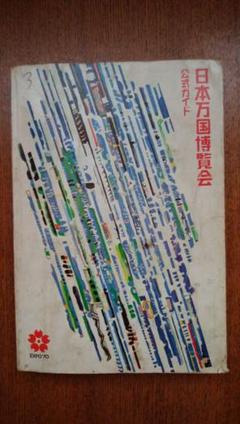 日本万国博覧会
公式ガイド
3
EXPO'70